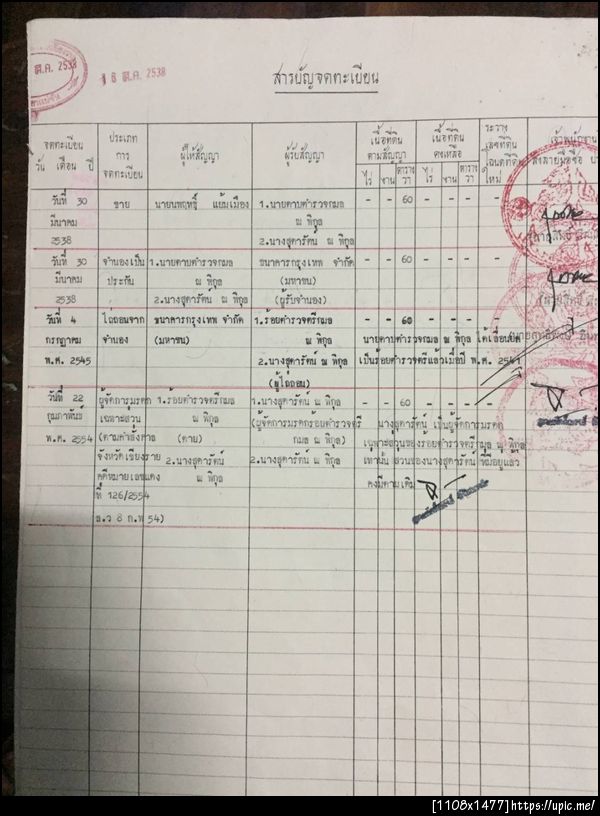 ส.ค. 2538
16 ส.ค. 2538
สารบัญจดทะเบียน
จดทะเบียน
วัน เดือน ปี
ประเภท
การ
จดทะเบียน
ผู้ให้สัญญา
ผู้รับสัญญา
เนื้อที่ดิน
ตามสัญญา
ไร่ งาน ตาราง
วา
เนื้อที่ดิน
คงเหลือ
ไร่ งาน ตาราง
วา
ระวาง
เลขที่ดิน
โฉนดที่ดิน
ใหม่
เจ้าพนักงาน
ลงลายมือชื่อ
วันที่ 30
มีนาคม
2538
ขาย
นายนพฤทธิ์ แย้มเมือง
1.นายดาบตำรวจกมล
ณ พิกูล
2.นางสุดารัตน์ ณ พิกูล
- - 60 - - - -
วันที่ 30
มีนาคม
2538
จำนองเป็น
ประกัน
1.นายดาบตำรวจกมล
ณ พิกูล
2.นางสุดารัตน์ ณ พิกูล
ธนาคารกรุงเทพ จำกัด
(มหาชน)
(ผู้รับจำนอง)
- - 60 - - - -
วันที่ 4
กรกฎาคม
พ.ศ. 2545
ไถ่ถอนจาก
จำนอง
ธนาคารกรุงเทพ จำกัด
(มหาชน)
1.ร้อยตำรวจตรีกมล
ณ พิกูล
2.นางสุดารัตน์ ณ พิกูล
(ผู้ไถ่ถอน)
- - 60 - - - -
นายดาบตำรวจกมล ณ พิกูล ได้เลื่อนยศ
เป็นร้อยตำรวจตรีแล้วเมื่อปี พ.ศ. 2541
วันที่ 22
กุมภาพันธ์
พ.ศ. 2554
ผู้จัดการมรดก
เฉพาะส่วน
(ตามคำสั่งศาล
จังหวัดเชียงราย
คดีหมายเลขแดง
ที่ 126/2554
ล.ว 8 ก.พ 54)
1.ร้อยตำรวจตรีกมล
ณ พิกูล
(ตาย)
2.นางสุดารัตน์
ณ พิกูล
1.นางสุดารัตน์ ณ พิกูล
(ผู้จัดการมรดกร้อยตำรวจตรี
กมล ณ พิกูล)
2.นางสุดารัตน์ ณ พิกูล
- - 60 - - - -
นางสุดารัตน์ เป็นผู้จัดการมรดก
เฉพาะส่วนของร้อยตำรวจตรีกมล ณ พิกูล
เท่านั้น ส่วนของนางสุดารัตน์ ที่มีอยู่แล้ว
คงมีตามเดิม
[1108x1477]https://upic.me/